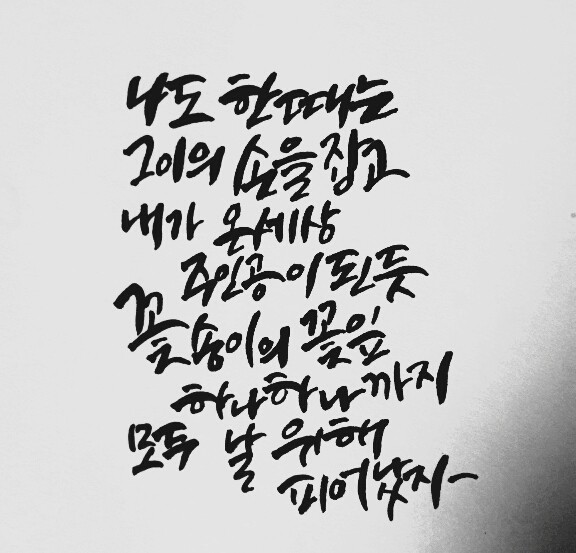 나도 한때는
그이의 손을 잡고
내가 온세상
주인공이 된 듯
꽃송이의 꽃잎
하나하나까지
모두 날 위해
피어났지~